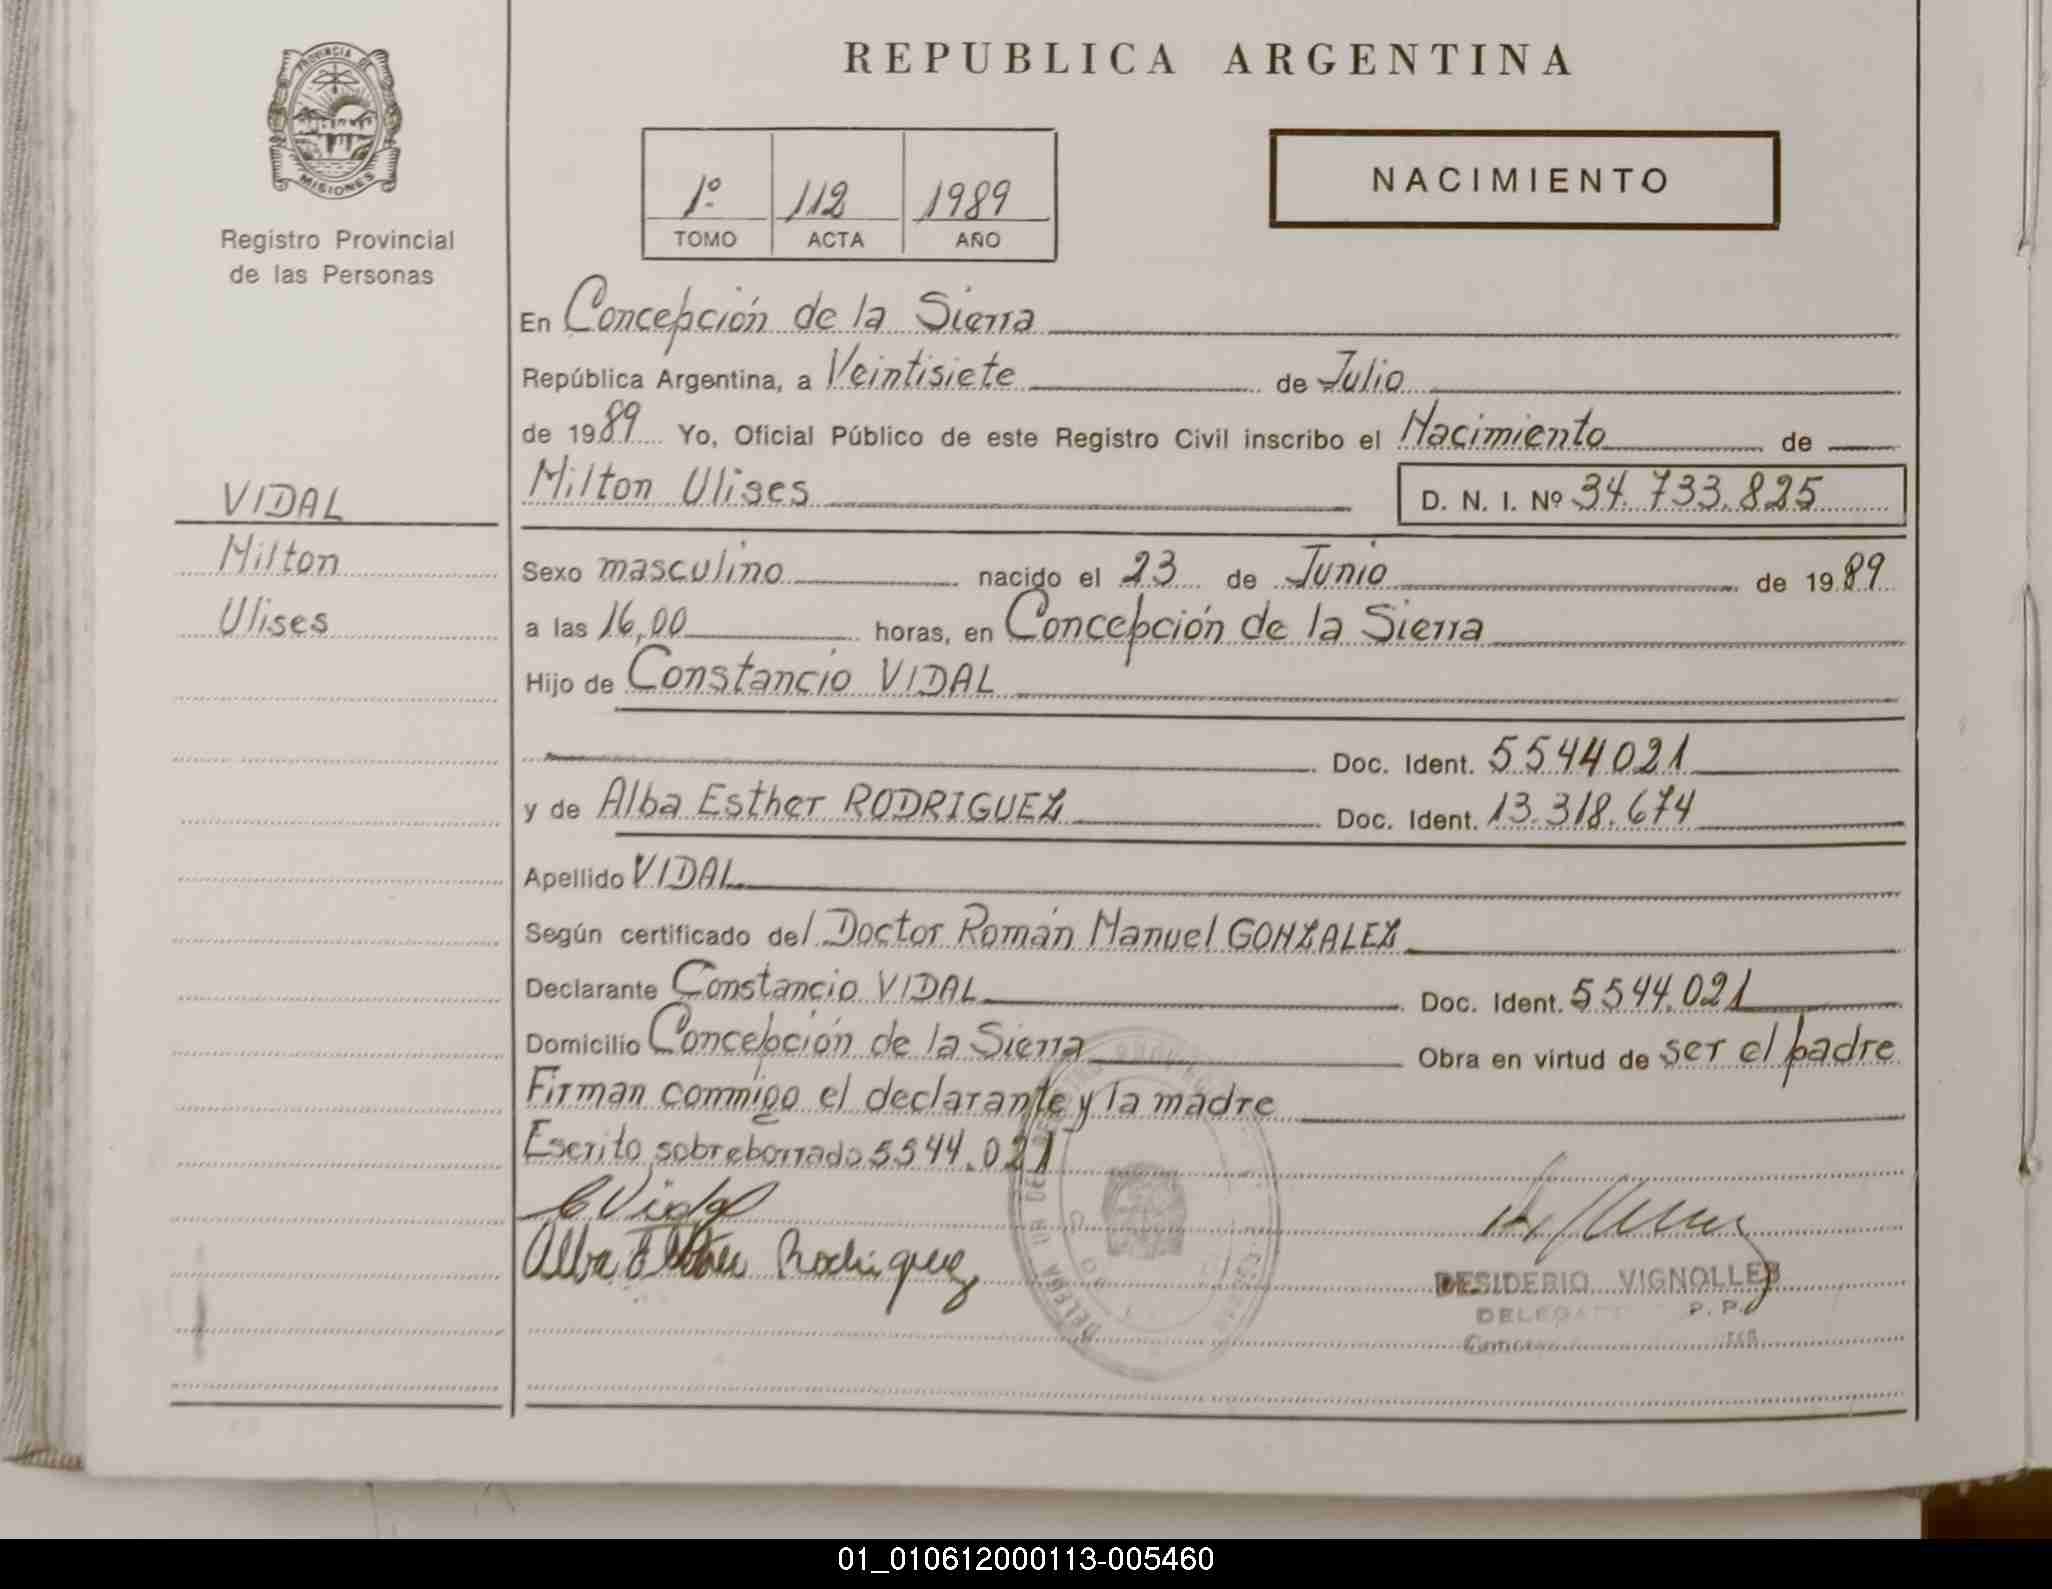 PROVINCIA DE
MISIONES
Registro Provincial
de las Personas
VIDAL
Milton
Ulises
REPUBLICA ARGENTINA
1º 112 1989
TOMO ACTA AÑO
NACIMIENTO
En Concepción de la Sierra
República Argentina, a Veintisiete de Julio
de 1989 Yo, Oficial Público de este Registro Civil inscribo el Nacimiento de
Milton Ulises D. N. I. Nº 34.733.825
Sexo masculino nacido el 23 de Junio de 1989
a las 16,00 horas, en Concepción de la Sierra
Hijo de Constancio VIDAL
Doc. Ident. 5544021
y de Alba Esther RODRIGUEZ Doc. Ident. 13.318.674
Apellido VIDAL
Según certificado del Doctor Román Manuel GONZALEZ
Declarante Constancio VIDAL Doc. Ident. 5544.021
Domicilio Concepción de la Sierra Obra en virtud de ser el padre
Firman conmigo el declarante y la madre
Escrito sobreborrado 5544.021
C Vidal
Alba Esther Rodriguez
DESIDERIO VIGNOLLES
01_010612000113-005460